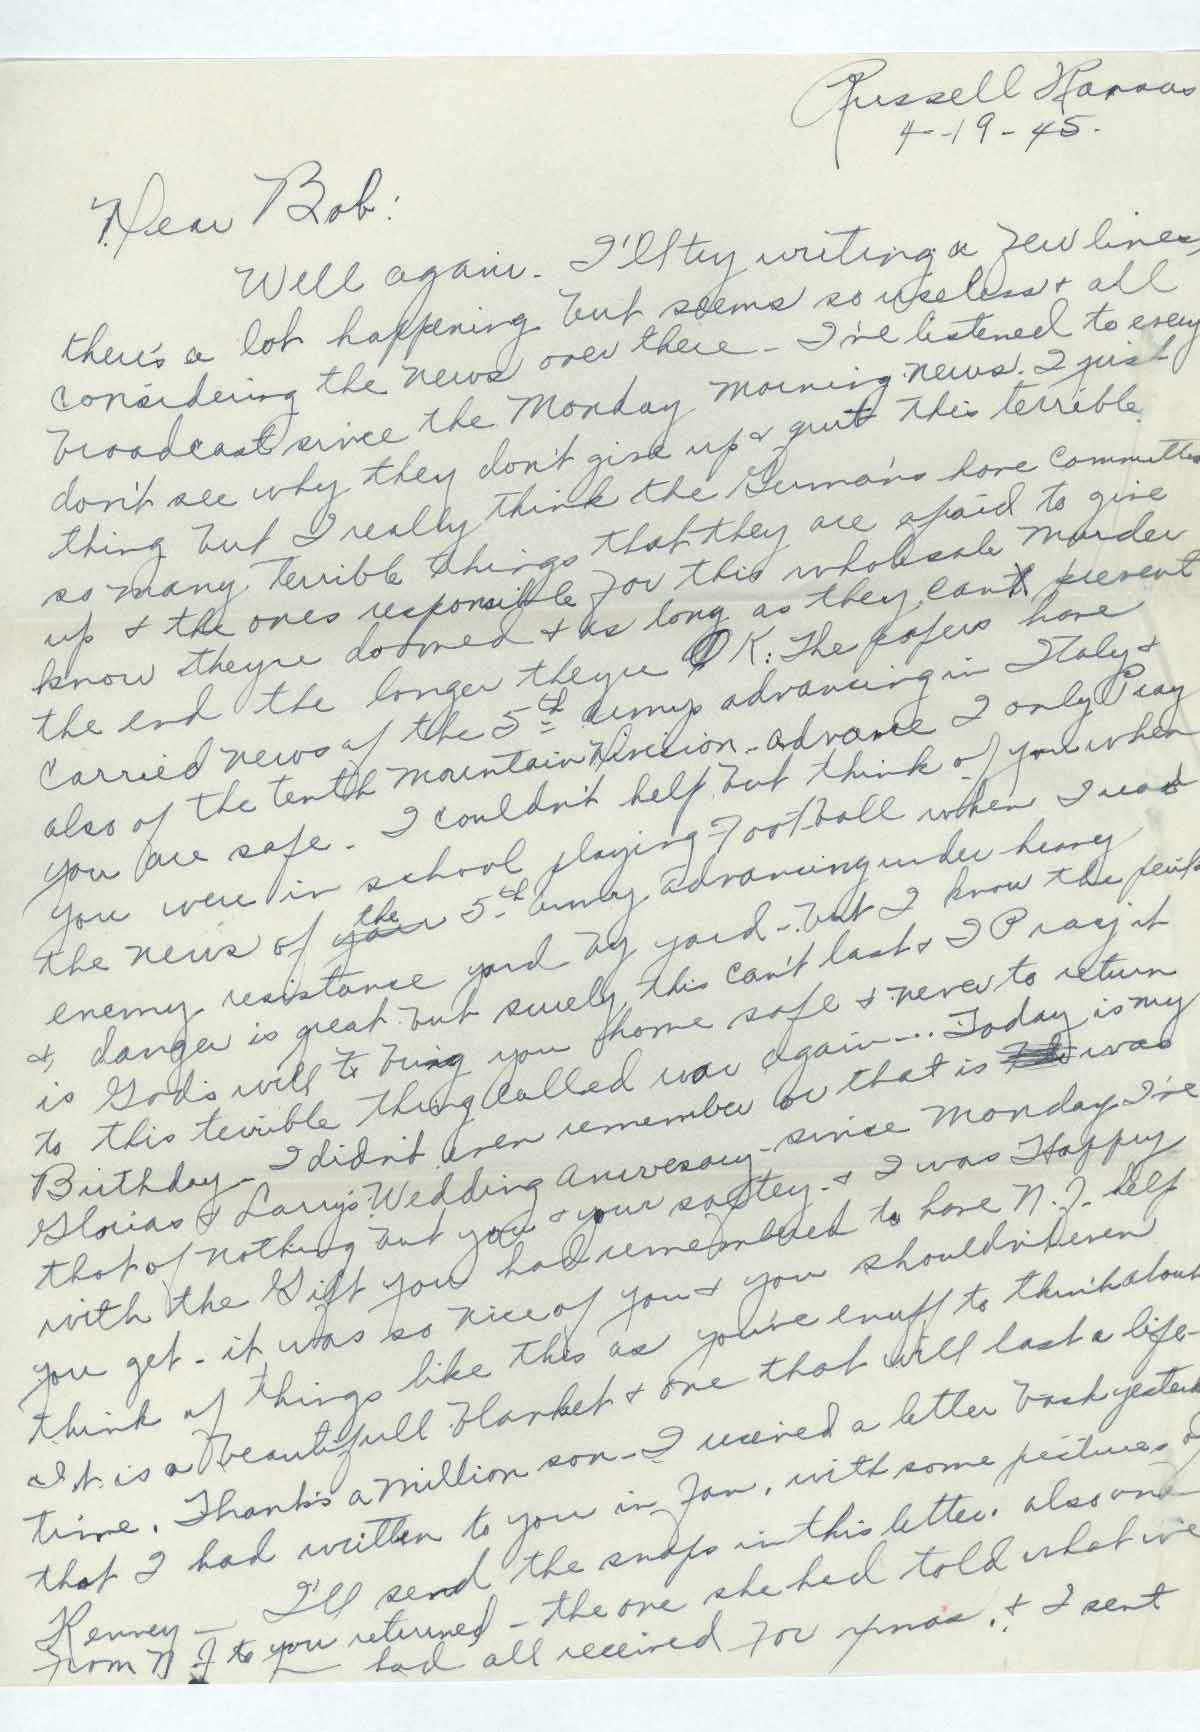 Russell Kansas
4-19-45.
Dear Bob:
Well again - I'll try writing a few lines,
there's a lot happening but seems so useless & all
considering the news over there - I've listened to every
broadcast since the Monday morning news. I just
don't see why they don't give up & quit this terrible
thing but I really think the Germans have committed
so many terrible things that they are afraid to give
up & the ones responsible for this wholesale murder
know theyre doomed & as long as they can prevent
the end the longer theyre OK. The papers have
carried news of the 5th armys advancing in Italy &
also of the tenth mountain Division - advance I only Pray
you are safe - I couldn't help but think of you when
you were in school playing Football when I read
the news of the 5th army advancing under heavy
enemy resistance yard by yard - but I know the perils
& danger is great but surely this can't last & I Pray it
is God's will to bring you home safe & never to return
to this terrible thing called war again -.. Today is my
Birthday - I didn't even remember or that is was
Glorias & Larrys Wedding Aniversary - since Monday I've
thot of nothing but you & your saftey - & I was Happy
with the Gift you had remembered to have N.J. help
you get - it was so nice of you & you shouldn't even
think of things like this as you've enuff to think about
It is a beautifull blanket & one that will last a life-
time. Thanks a million son - I received a letter back yesterday
that I had written to you in Jan, with some pictures of
Kenney - I'll send the snaps in this letter. also one
from N.J to you returned - the one she had told what we
had all received for xmas, & I sent